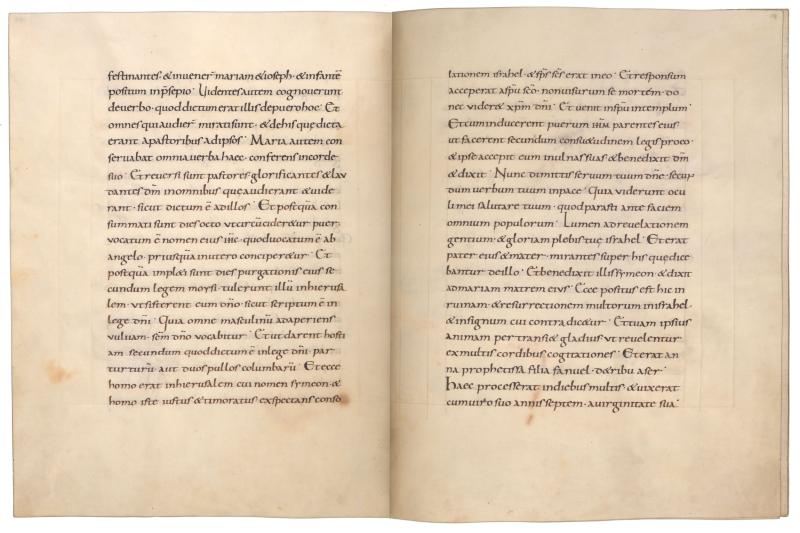 festinantes · & invener̄ mariam & ioseph · & infantē
positum inp̄sepio · Uidentes autem cognoverunt
deverbo · quod dictum erat illis depuero hoc · Et
omnes qui audier̄ mirati sunt · & dehis quę dicta
erant apastoribus adipsos · Maria autem con
servabat omnia verba haec · conferens incorde
suo · Et reversi sunt pastores glorificantes & lau
dantes dm̄ inomnibus quę audierant & vide
rant · sicut dictum ē adillos · Et postquā con
summati sunt dies octo ut circūcider&ur puer ·
vocatum ē nomen eius ih̄c · quod vocatum ē ab
angelo · priusquā inutero conciper&ur · Et
postquā impl&i sunt dies purgationis eius se
cundum legem moysi · tulerunt illū inhierusa
lem · ut sisterent eum dn̄o · sicut scriptum ē in
lege dn̄i · Quia omne masculinū adaperiens
vulvam · sc̄m dn̄o vocabitur · Et ut darent hosti
am secundum quod dictum ē inlege dn̄i · par
turturū aut duos pullos columbarū · Et ecce
homo erat inhierusalem cui nomen symeon · &
homo iste iustus & timoratus exspectans conso
lationem israhel · & sp̄s sc̄s erat ineo · Et responsum
acceperat asp̄u sc̄o · non visurum se mortem · do
nec vider& xp̄m dn̄i · Et venit insp̄u intemplum ·
Et cum inducerent puerum ih̄m parentes eius
ut facerent secundum consu&udinem legis pro eo ·
& ipse accepit eum inulnas suas & benedixit dm̄
& dixit · Nunc dimittis servum tuum dn̄e · secun
dum verbum tuum inpace · Quia viderunt ocu
li mei salutare tuum · quod parasti ante faciem
omnium populorum · Lumen adrevelationem
gentium & gloriam plebis tuę israhel · Et erat
pater eius & mater · mirantes super his quę dice
bantur deillo · Et benedixit illis symeon · & dixit
admariam matrem eius · Ecce positus est hic in
ruinam · & resurrectionem multorum inisrahel ·
& insignum cui contradic&ur · Et tuam ipsius
animam per transi& gladius ut revelentur
exmultis cordibus cogitationes · Et erat an
na prophetissa filia fanuel · detribu aser ·
haec processerat indiebus multis · & vixerat
cum viro suo annis septem · avirginitate sua ·